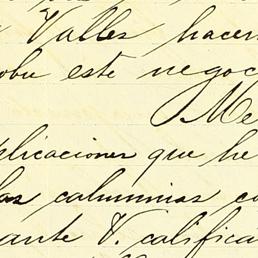 Valles hacer
este negoc
Me
plicaciones que he
las calumnias co
ante V. califica